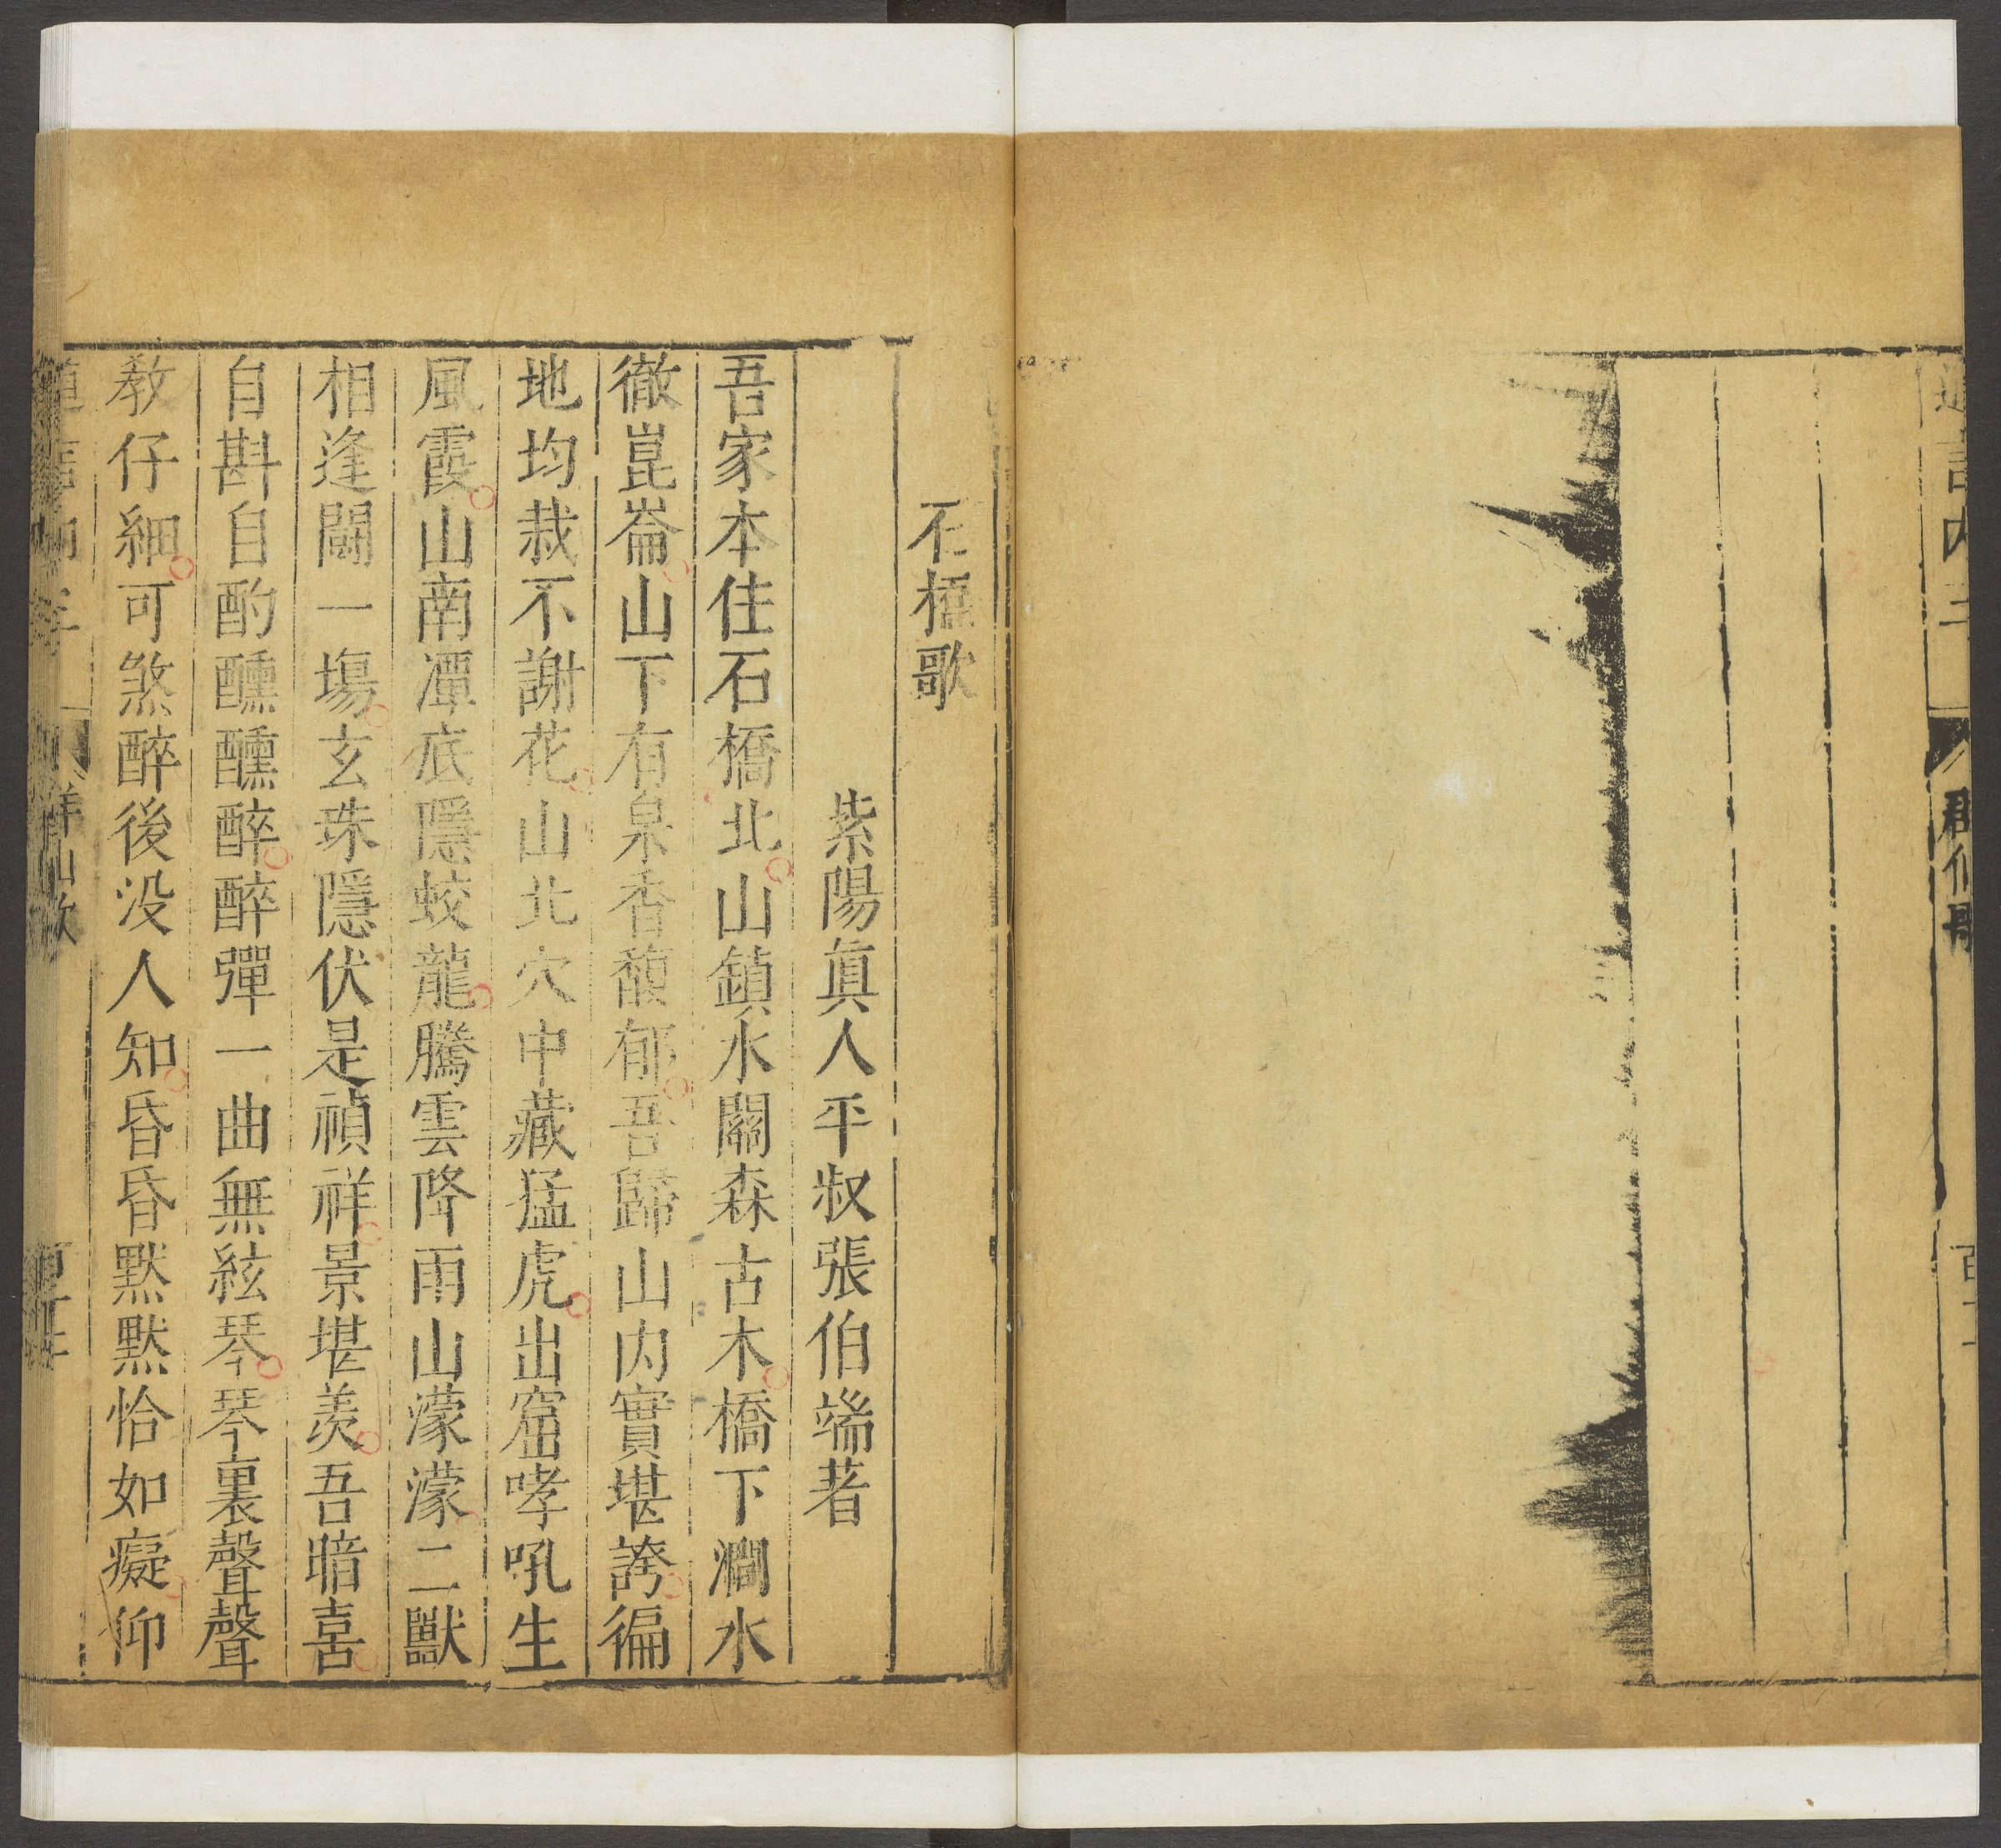 石橋歌
紫陽眞人平叔張伯端著
吾家本住石橋北山鎮水關森古木橋下澗水
徹崑崙山下有泉香馥郁吾歸山内實堪誇徧
地均栽不謝花山北穴中藏猛虎出窟哮吼生
風霞山南潭底隱蛟龍騰雲降雨山濛濛二獸
相逢鬪一場玄珠隱伏是禎祥景堪羨吾暗喜
自斟自酌醺醺醉醉彈一曲無絃琴琴裏聲聲
教仔細可煞醉後没人知昏昏默默恰如癡仰